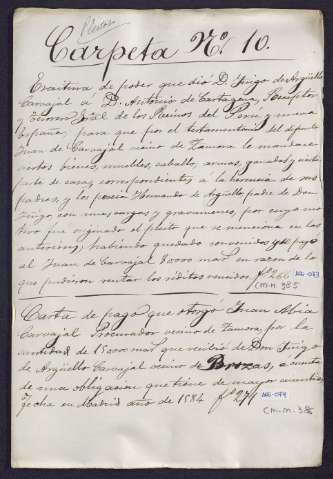 Pleitos
Carpeta Nº 10.
Escritura de poder que dió D. Iñigo de Argüello
Carvajal a D. Antonio de Cartagena, Receptor
y Tesorero Gral de los Reinos del Perú y nueva
España, para que por el testamento del difunto
Juan de Carvajal vecino de Zamora le mandase
ciertos bienes, muebles, caballo, armas, ganados, y cierta
parte de casas, correspondientes a la herencia de sus
padres, y los poseía Hernando de Argüello, padre de Don
Iñigo, con esas cargas y gravamenes, por cuyo mo-
tivo fue originado el pleito que se menciona en las
anteriores, habiendo quedado convenidos que pagó
al Juan de Carvajal 80000 mas. en razon de lo
que pudieron rentar los réditos vencidos. fº 266 AG-073
C.M.M. 385
Carta de pago que otorgó Juan Abia
Carvajal Procurador vecino de Zamora, por la
cantidad de 15000 mas. que recibió de Don Iñigo
de Argüello Carvajal vecino de Brozas, a cuenta
de una obligacion que tiene de mayor cuantia,
fecha en Madrid año de 1584 fº 271 AG-074
C.M.M. 386